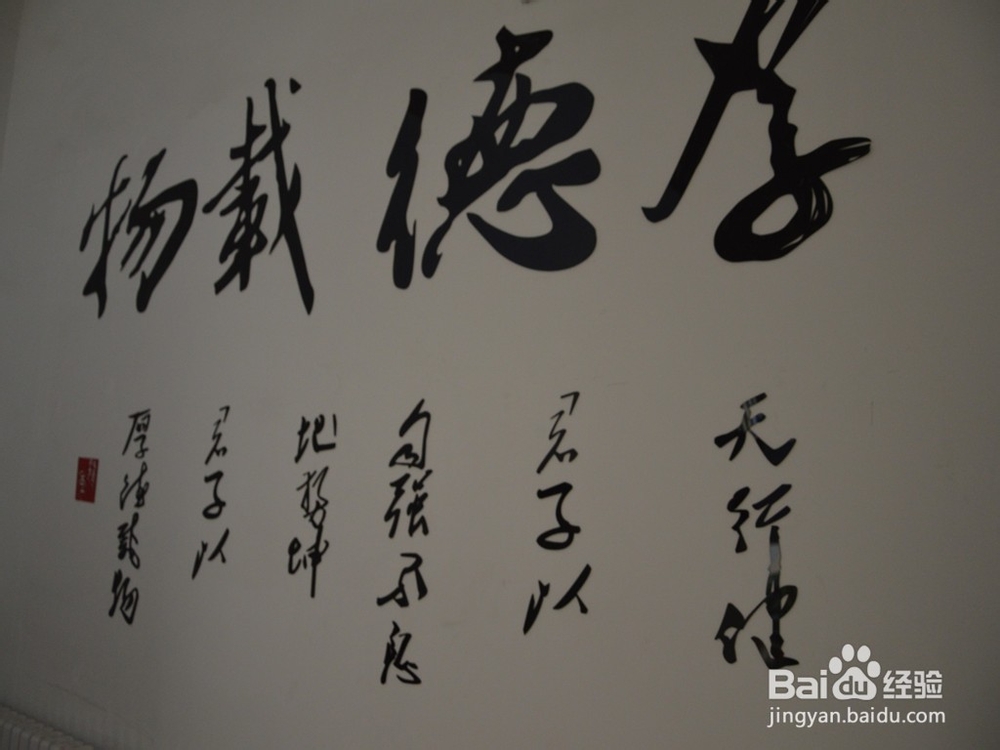 厚德載物
天行健
君子以
自强不息
地势坤
君子以
厚德载物
Baidu经验
jingyan.baidu.com